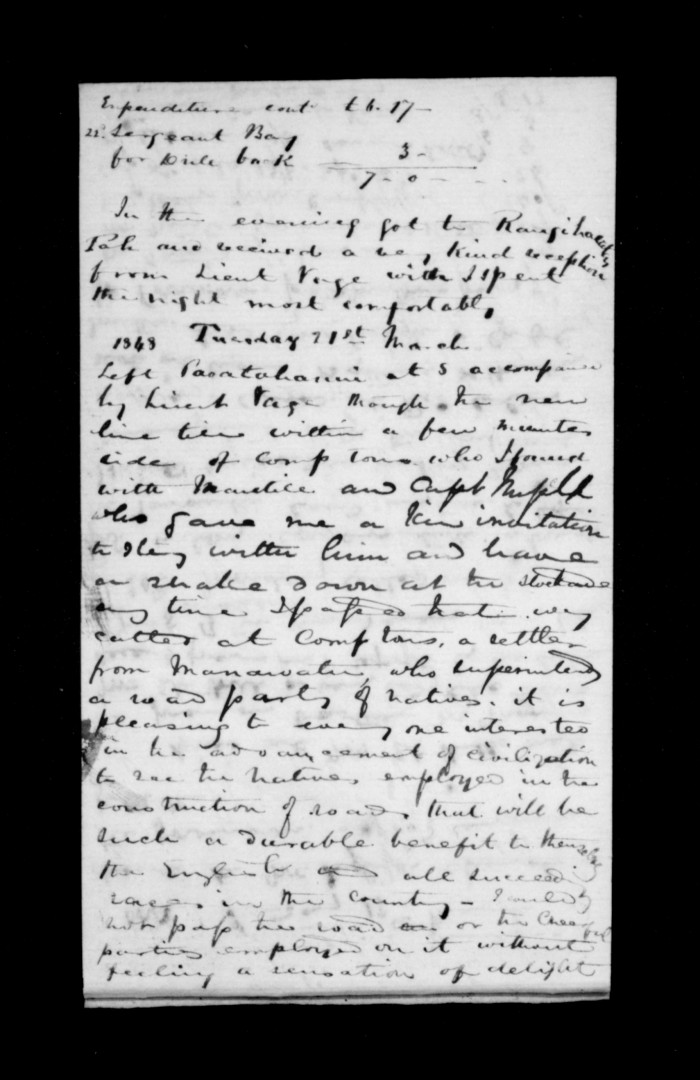 Expenditure cont £6.17-
22. Sergeant Bay
for Dule back 3-
7-0-
In the evening got to Rangihaeata's
Pah and received a very kind reception
from Lieut Page with I spent
the night most comfortably
1848 Tuesday 21st March
Left Pauatahanui at 5 accompanied
by Lieut Page through the new
line till within a few minutes
ride of Comptons who I found
with and Capt
who gave me a kin invitation
to stay with him and have
a shake down at the stockade
any time I passed that way
called at Comptons, a settler
from Manawatu, who superintends
a road party of natives. it is
pleasing to every one interested
in the advancement of civilization
to see the Natives employed in the
construction of roads that will be
such a durable benefit to themselves
the English and all succeeding
races in the country - I could
not pass the road or the cheerful
parties employed on it without
feeling a sensation of delight